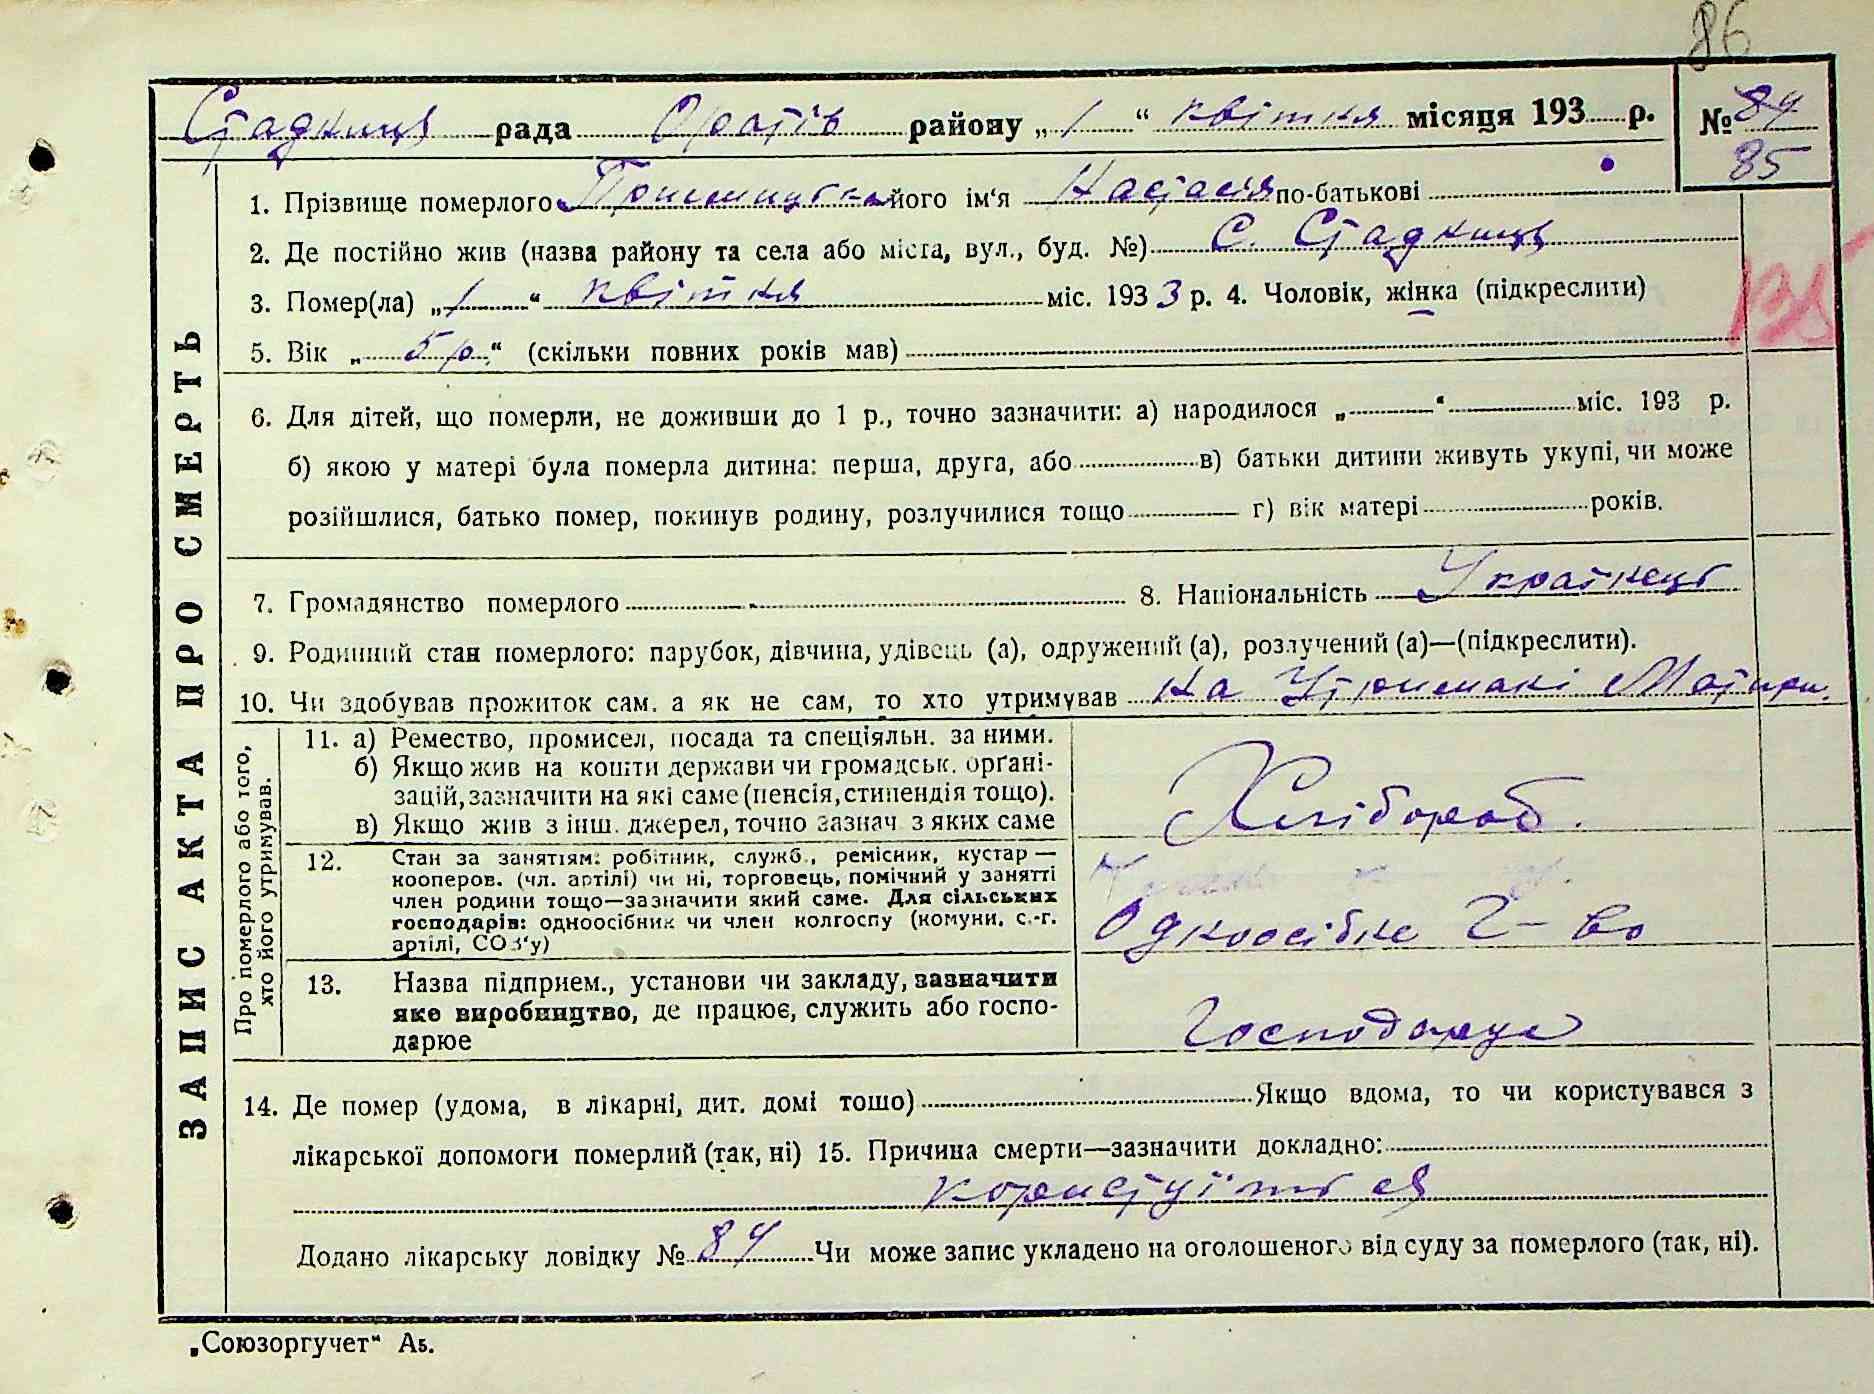 86
Стадниця рада Оратів району „1“ квітня місяця 193 р. № 84
85
ЗАПИС АКТА ПРО СМЕРТЬ
1. Прізвище померлого його ім‘я Настасія по-батькові
2. Де постійно жив (назва району та села або міста, вул., буд. №) С. Стадниця
3. Помер(ла) „1“ квітня міс. 193 3 р. 4. Чоловік, жінка (підкреслити)
5. Вік „5 р.“ (скільки повних років мав)
6. Для дітей, що померли, не доживши до 1 р., точно зазначити: а) народилося „ “ міс. 193 р.
б) якою у матері була померла дитина: перша, друга, або в) батьки дитини живуть укупі, чи може
розійшлися, батько помер, покинув родину, розлучилися тощо г) вік матері років.
7. Громадянство померлого 8. Національність Українець
9. Родинний стан померлого: парубок, дівчина, удівець (а), одружений (а), розлучений (а)—(підкреслити).
10. Чи здобував прожиток сам. а як не сам, то хто утримував На Утримані Матири.
Про померлого або того, хто його утримував.
11. а) Ремество, промисел, посада та спеціяльн. за ними.
б) Якщо жив на кошти держави чи громадськ. орґані-
зацій, зазначити на які саме (пенсія, стипендія тощо).
в) Якщо жив з інш. джерел, точно зазнач. з яких саме
Хлібороб.
12. Стан за занятіям: робітник, служб., ремісник, кустар—
кооперов. (чл. артілі) чи ні, торговець, помічний у занятті
член родини тощо—зазначити який саме. Для сільських
господарів: одноосібник чи член колгоспу (комуни, с.-г.
артілі, СОЗ‘у)
Одноосібне Г-во
13. Назва підприєм., установи чи закладу, зазначити
яке виробництво, де працює, служить або госпо-
дарює
Господарує
14. Де помер (удома, в лікарні, дит. домі тощо) Якщо вдома, то чи користувався з
лікарської допомоги померлий (так, ні) 15. Причина смерти—зазначити докладно:
Додано лікарську довідку № 84 Чи може запис укладено на оголошеного від суду за померлого (так, ні).
„Союзоргучет“ А5.